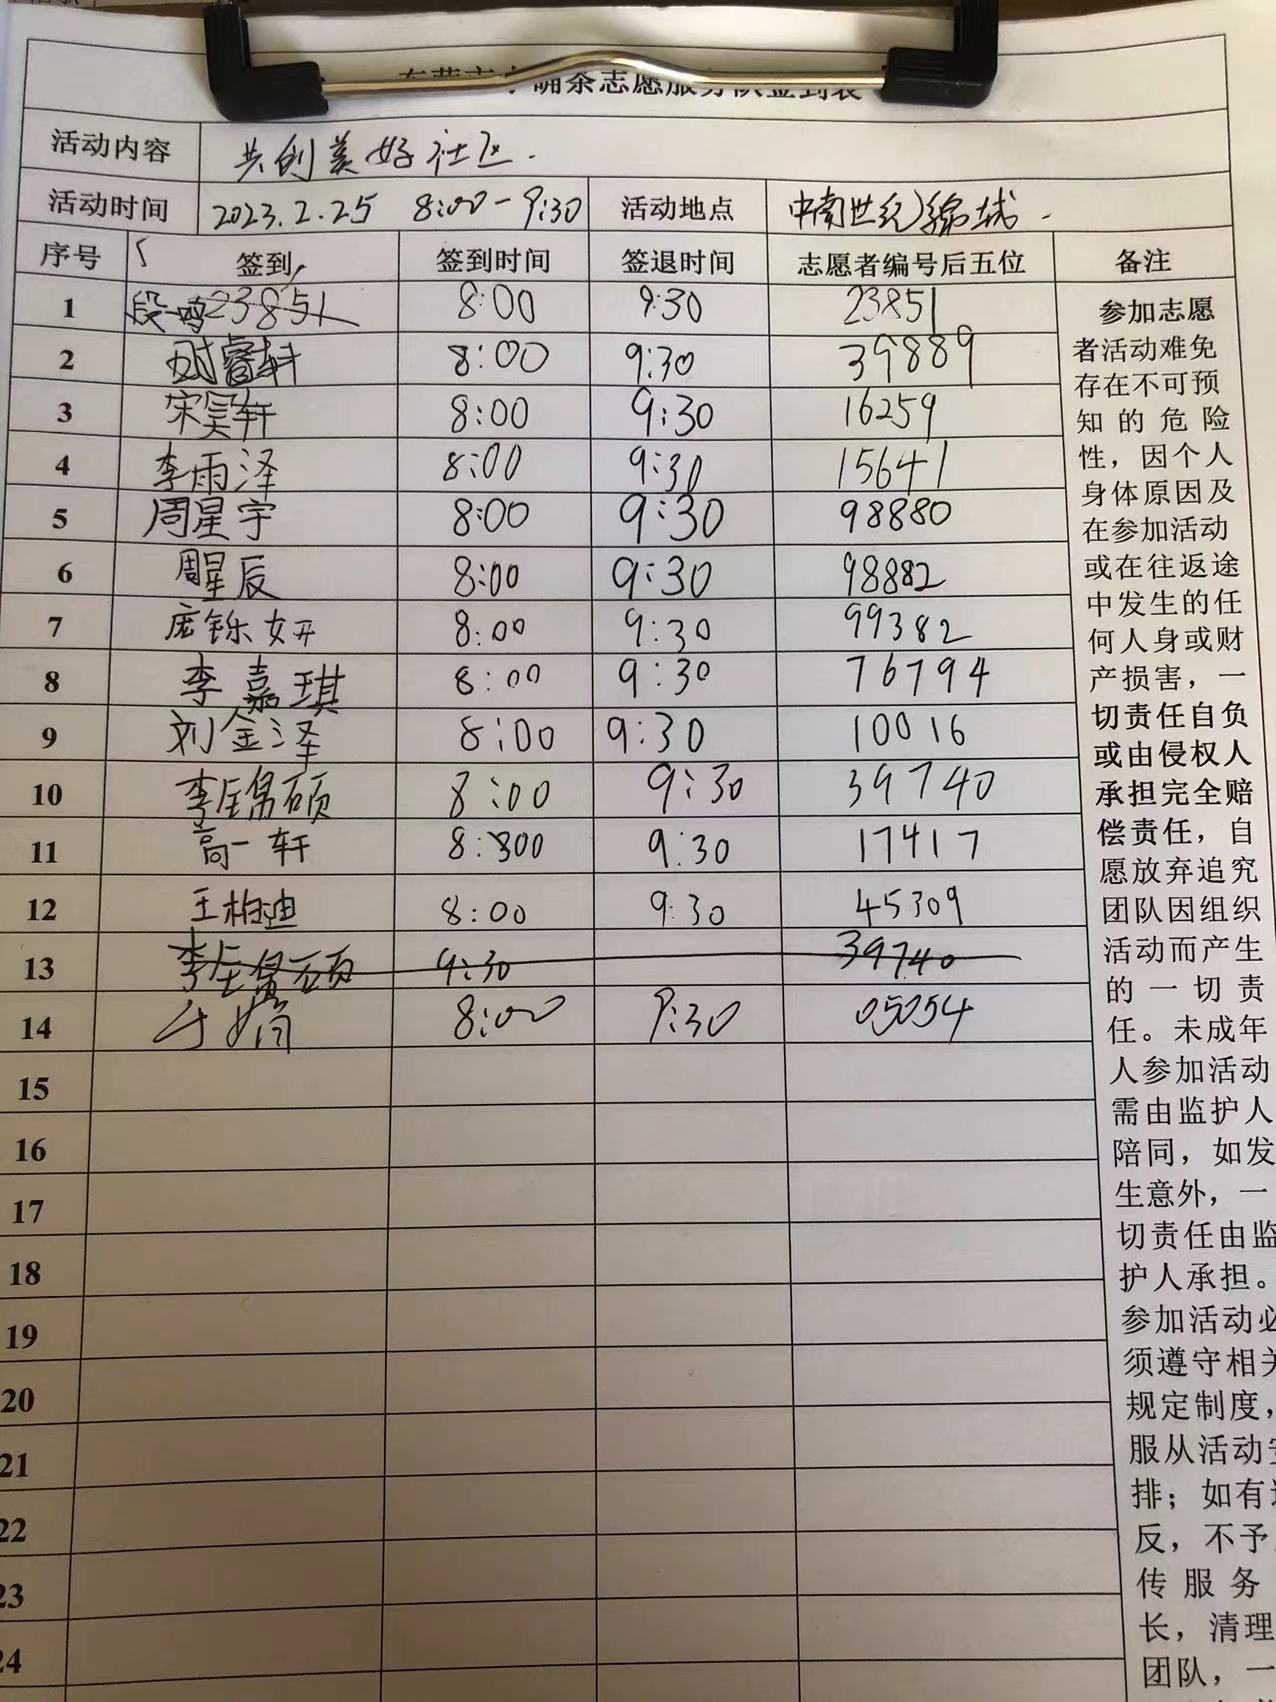 志愿服务队签到表
活动内容 共创美好社区.
活动时间 2023.2.25 8:00-9:30 活动地点 中南世纪锦城.
序号 签到 签到时间 签退时间 志愿者编号后五位 备注
1 段一鸣 23851 8:00 9:30 23851
2 睿轩 8:00 9:30 39889
3 宋昊轩 8:00 9:30 16259
4 李雨泽 8:00 9:30 15641
5 周星宇 8:00 9:30 98880
6 周星辰 8:00 9:30 98882
7 庞铄妍 8:00 9:30 99382
8 李嘉琪 8:00 9:30 76794
9 刘金泽 8:00 9:30 10016
10 李 硕 8:00 9:30 39740
11 高一轩 8:300 9:30 17417
12 王柏迪 8:00 9:30 45309
13 李 9:30 39740
14 牛娟 8:00 9:30 05054
15
16
17
18
19
20
21
22
23
24
参加志愿
者活动难免
存在不可预
知的危险
性，因个人
身体原因及
在参加活动
或在往返途
中发生的任
何人身或财
产损害，一
切责任自负
或由侵权人
承担完全赔
偿责任，自
愿放弃追究
团队因组织
活动而产生
的一切责
任。未成年
人参加活动
需由监护人
陪同，如发
生意外，一
切责任由监
护人承担。
参加活动必
须遵守相关
规定制度，
服从活动安
排；如有违
反，不予
传服务
长，清理
团队，一